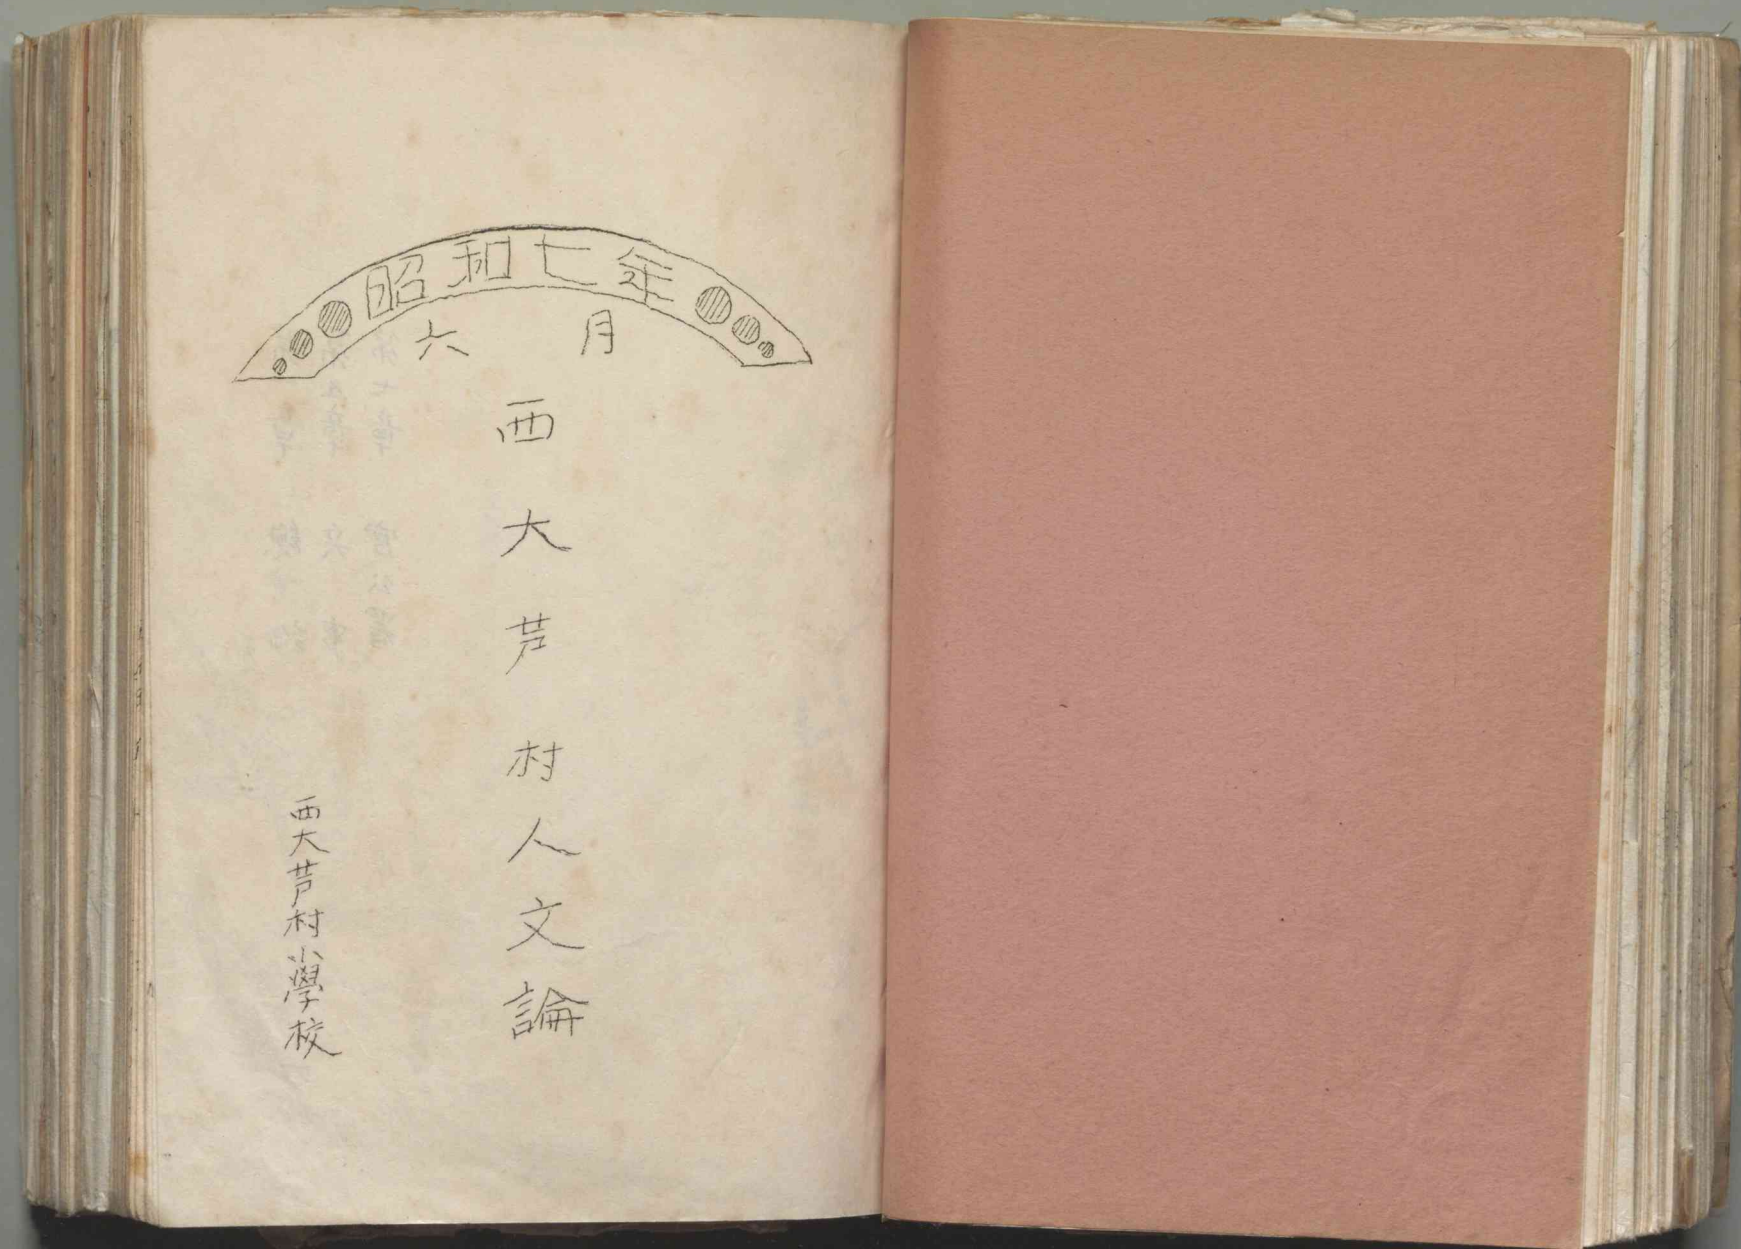 昭和七年
六月
西大芦村人文論
西大芦村小學校